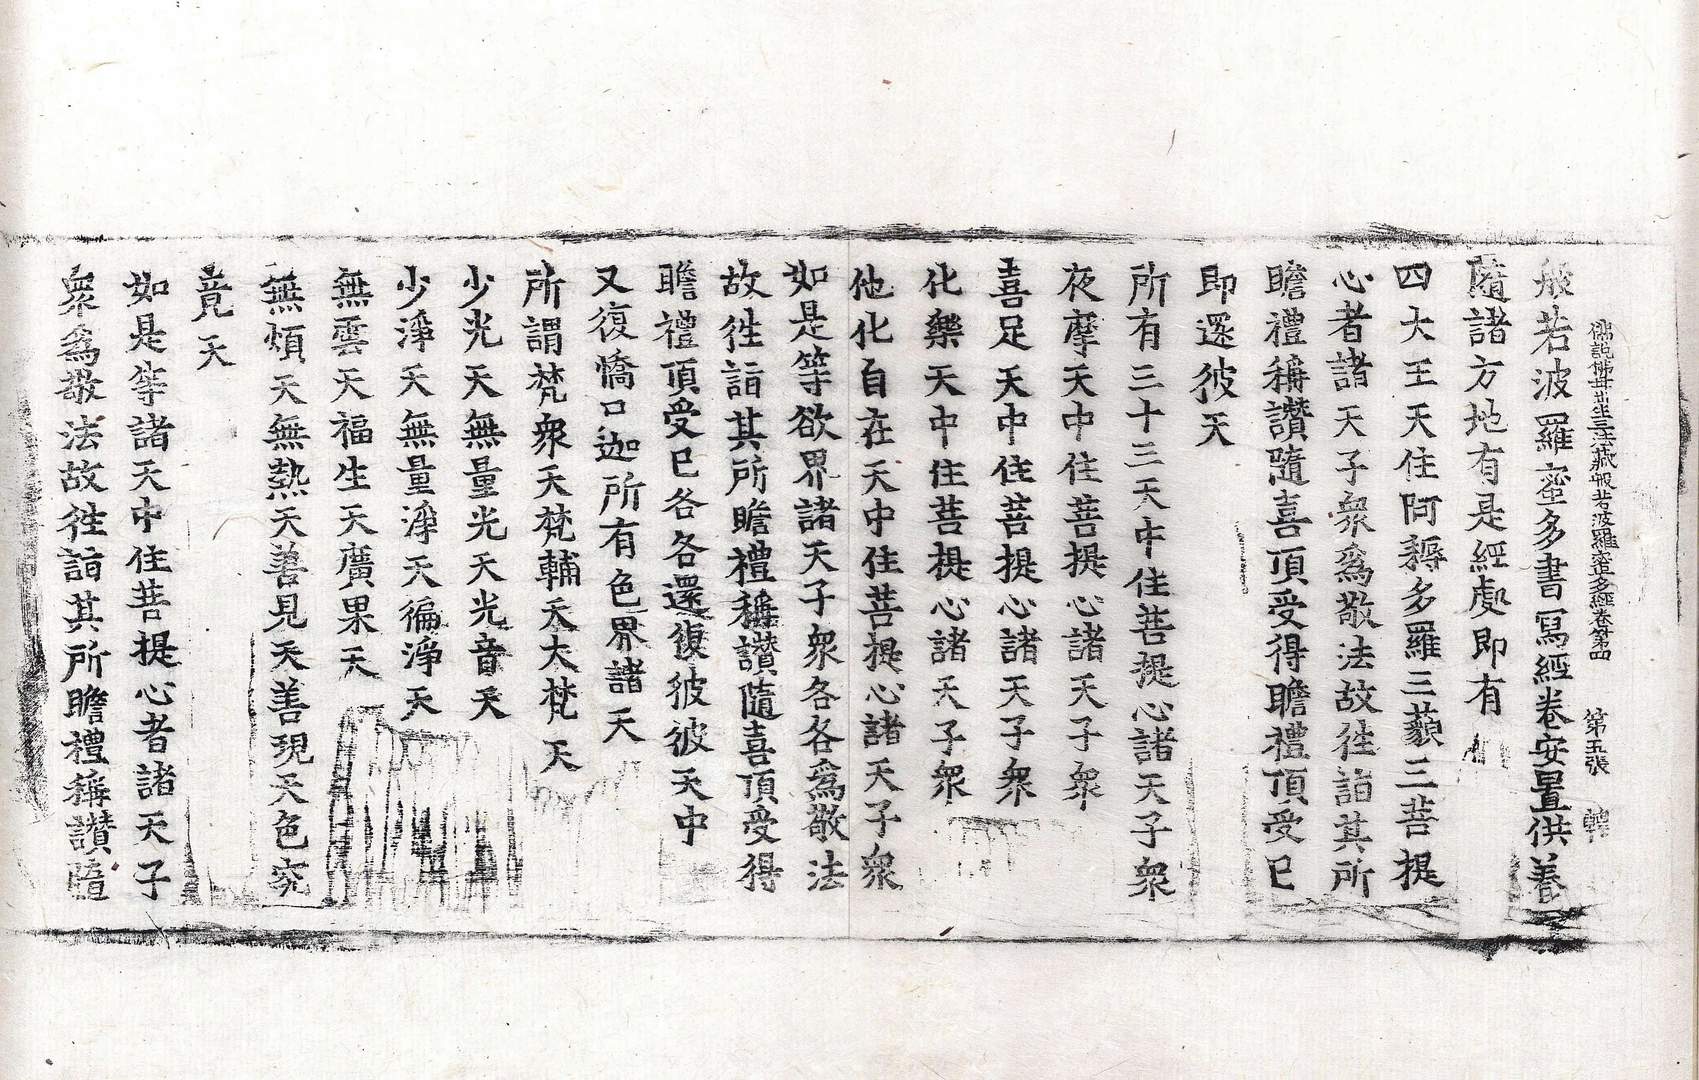 佛說佛母出生三法藏般若波羅蜜多經卷第四 第五張 轉
般若波羅蜜多書寫經卷安置供養
隨諸方地有是經處即有
四大王天住阿耨多羅三藐三菩提
心者諸天子衆爲敬法故徃詣其所
瞻禮稱讚隨喜頂受得瞻禮頂受已
即還彼天
所有三十三天中住菩提心諸天子衆
夜摩天中住菩提心諸天子衆
喜足天中住菩提心諸天子衆
化樂天中住菩提心諸天子衆
他化自在天中住菩提心諸天子衆
如是等欲界諸天子衆各各爲敬法
故徃詣其所瞻禮稱讚隨喜頂受得
瞻禮頂受已各各還復彼彼天中
又復憍尸迦所有色界諸天
所謂梵衆天梵輔天大梵天
少光天無量光天光音天
少淨天無量淨天徧淨天
無雲天福生天廣果天
無煩天無熱天善見天善現天色究
竟天
如是等諸天中住菩提心者諸天子
衆爲敬法故徃詣其所瞻禮稱讚隨